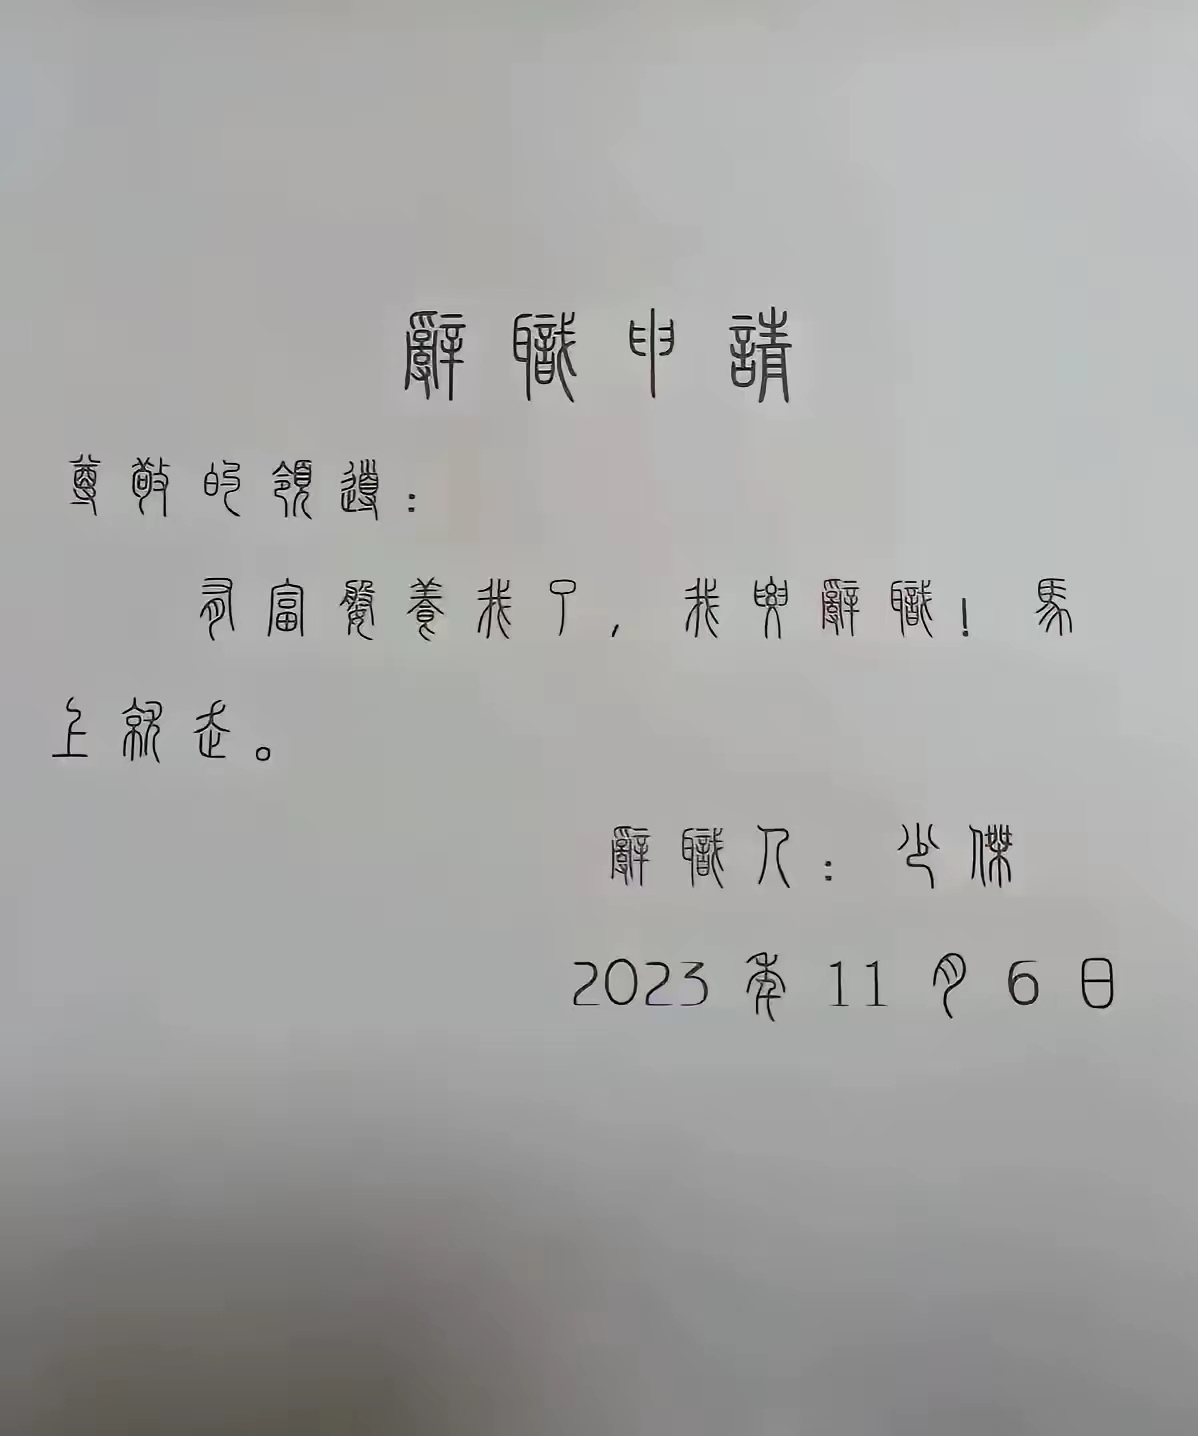 辭職申請
尊敬的領導：
有富婆養我了，我要辭職！馬
上就走。
辭職人：少傑
2023年11月6日